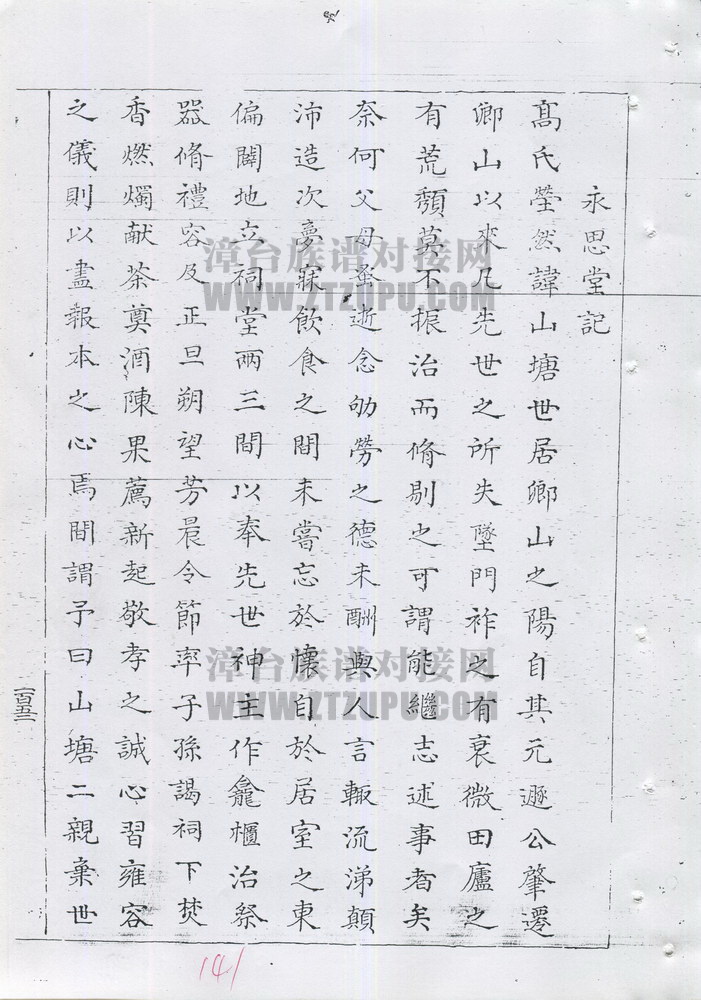 永思堂記
髙氏塋然諱山塘世居鄉山之陽自其元遯公肇遷
鄉山以來凡先世之所失墜門祚之有衰微田廬之
有荒頽莫不振治而脩剔之可謂能繼志述事者矣
奈何父母蚤逝念劬勞之德未酬與人言輙流涕顛
沛造次夢寐飲食之間未嘗忘於懷自於居室之東
偏闢地立祠堂兩三間以奉先世神主作龕櫃治祭
器脩禮容及正旦朔望芳晨令節率子孫謁祠下焚
香燃燭献茶奠酒陳果薦新起敬孝之誠心習雍容
之儀則以盡報本之心焉間謂予曰山塘二親棄世
一百五三
141
漳台族谱对接网
WWW.ZTZUPU.COM
漳台族谱对接网
WWW.ZTZUPU.COM